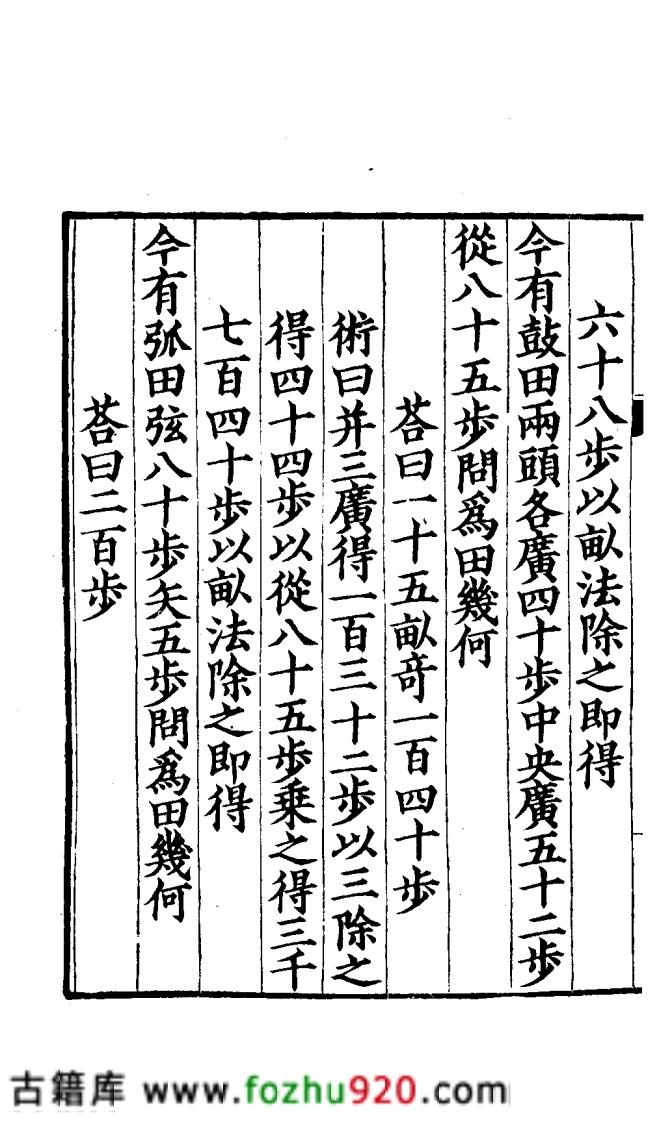 六十八步以畝法除之即得
今有鼓田兩頭各廣四十步中央廣五十二步
從八十五步問爲田幾何
荅曰一十五畝竒一百四十步
術曰并三廣得一百三十二步以三除之
得四十四步以從八十五步乗之得三千
七百四十步以畝法除之即得
今有弧田弦八十步矢五步問爲田幾何
荅曰二百步
古籍库 www.fozhu920.com